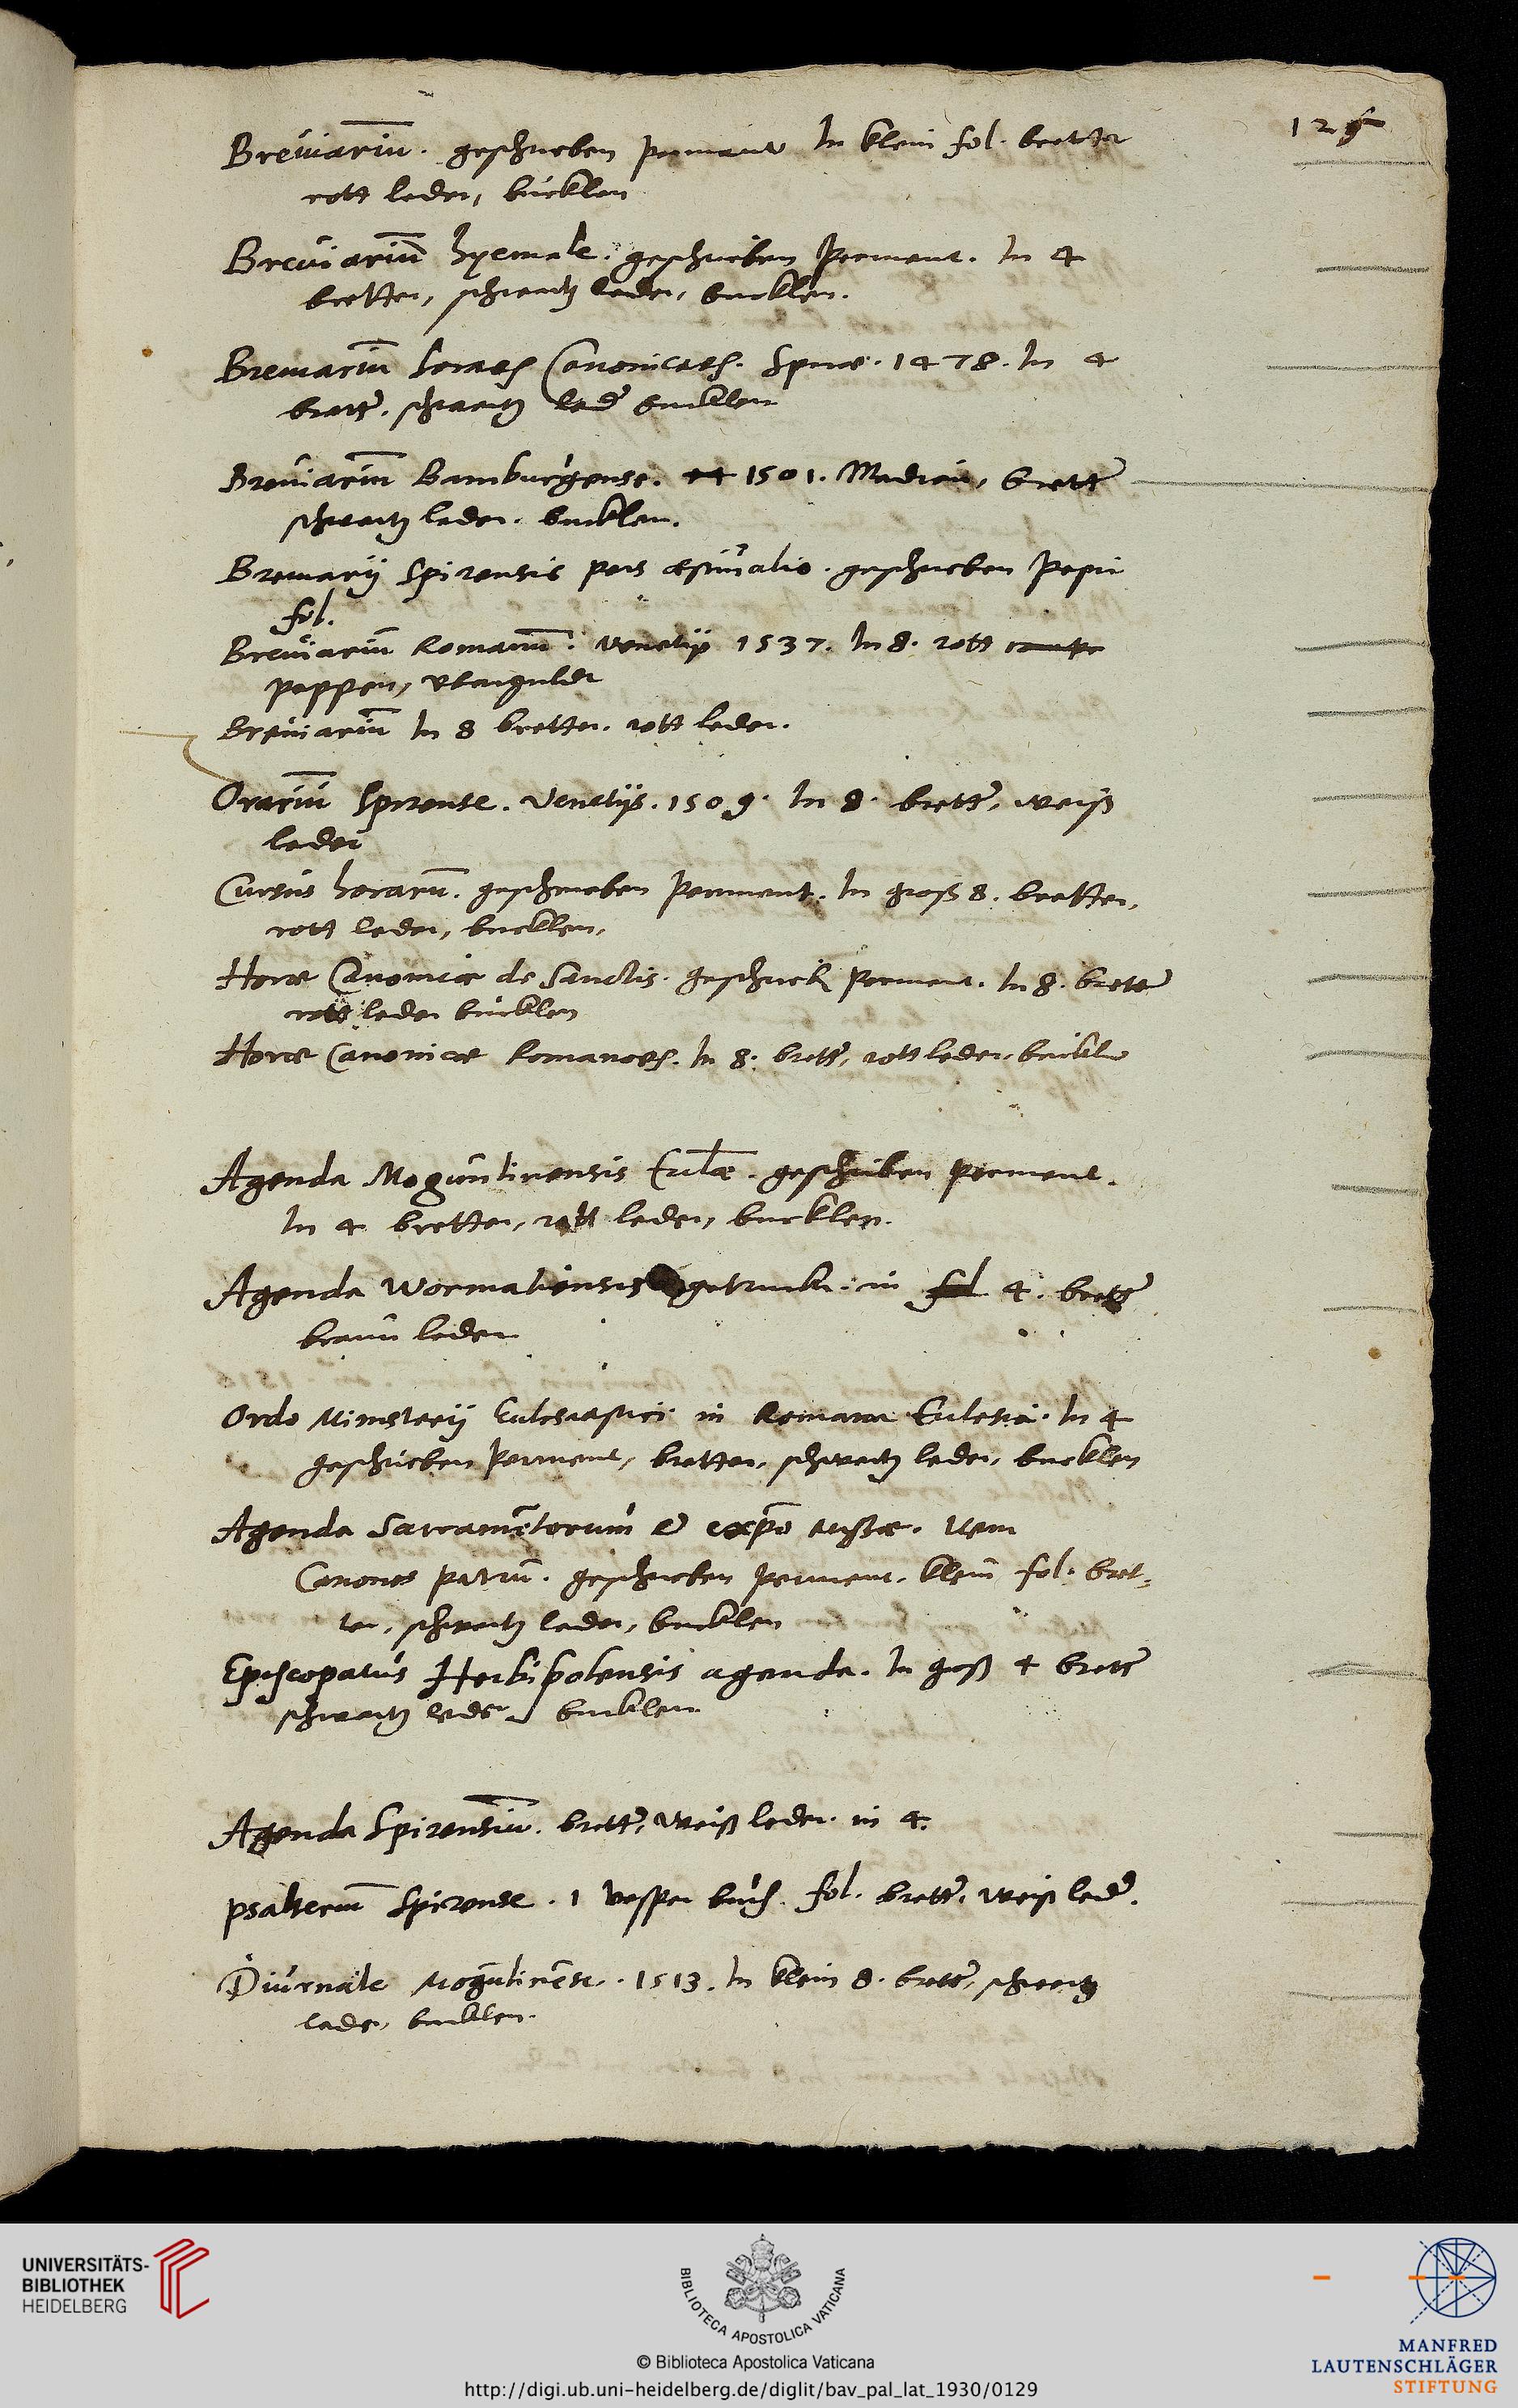 125
Breviariū. geschrieben perment In klein fol. bretter
rott leder, bucklen
Breviariū hyemale. geschrieben perment. In 4
bretter, schwartz leder, bucklen.
Breviariū horarū Canonicarū. Spirae. 1478. In 4
brett. schwartz led bucklen
Breviariū Bamburgense. 1501. Median, brett
schwartz leder. bucklen.
Breviarij Spirensis pars aestivalis. geschrieben papir
fol.
Breviariū Romanū. Venetijs 1537. In 8. rott
pappen, uberguldt
Breviariū In 8 bretter. rott leder.
Orariū Spirense. Venetijs. 1509. In 8. brett, weiß
leder
Cursus horarū. geschrieben perment. In groß 8. bretter,
rott leder, bucklen,
Horae Canonicae de Sanctis. geschrieb perment. In 8. brett
rott leder bucklen
Horae Canonicae Romanorū. In 8. brett, rott leder, buckle
Agenda Moguntinensis Ecclae. geschriben perment.
In 4 bretter, rott leder, bucklen.
Agenda Wormatiensis getruckt. in fol 4. brett
braun leder
Ordo Ministerij Ecclesiastici in Romana Ecclesia. In 4
geschrieben perment, bretter, schwartz leder, bucklen
Agenda Sacramētorum & expō missae. Item
Canones patrū. geschrieben perment. klein fol. bret-
ter, schwartz leder, bucklen
Episcopatus Herbipolensis agenda. In groß 4 brett
schwartz leder bucklen
Agenda Spirensiū. brett, weiß leder. in 4.
psalteriū Spirense. 1 vesper buch. fol. brett, weiß led.
Diurnale Mogūtinēse. 1513. In klein 8. brett, schwartz
leder, bucklen.
UNIVERSITÄTS-
BIBLIOTHEK
HEIDELBERG
BIBLIOTECA APOSTOLICA VATICANA
© Biblioteca Apostolica Vaticana
http://digi.ub.uni-heidelberg.de/diglit/bav_pal_lat_1930/0129
MANFRED
LAUTENSCHLÄGER
STIFTUNG